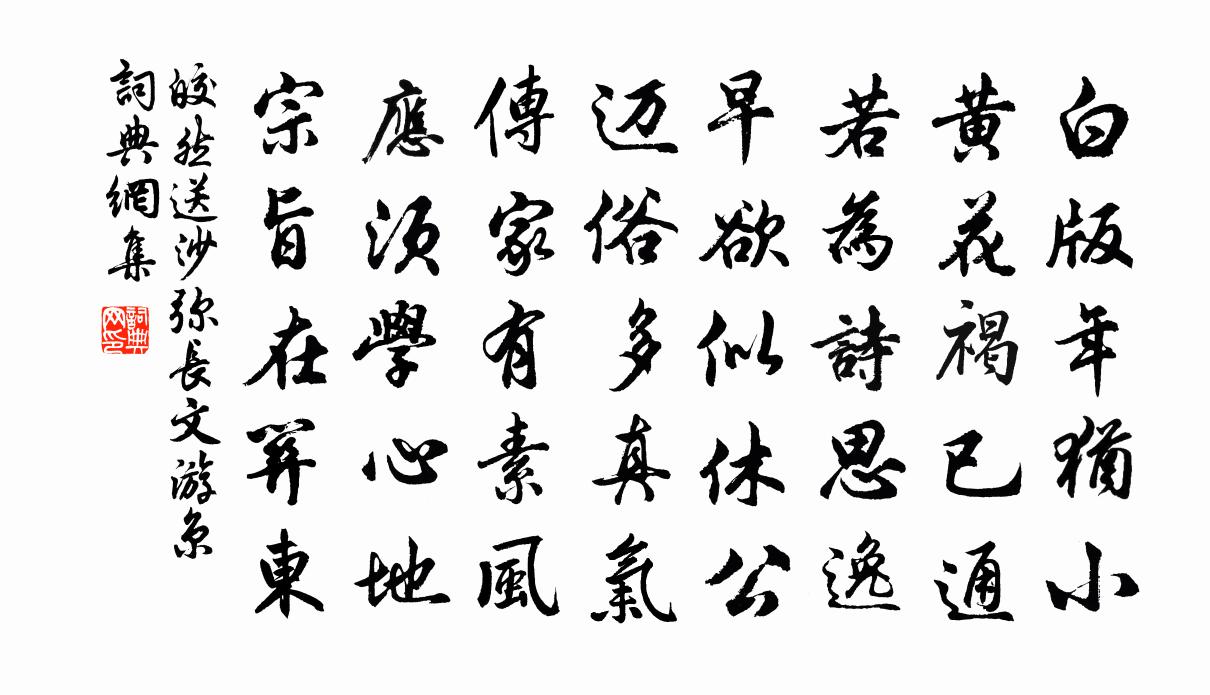 白版年猶小
黄花褐已通
若為詩思逸
早欲似休公
迈俗多真氣
傳家有素風
應須學心地
宗旨在關東
皎然送沙弥長文游京
詞典網集
詞典网印